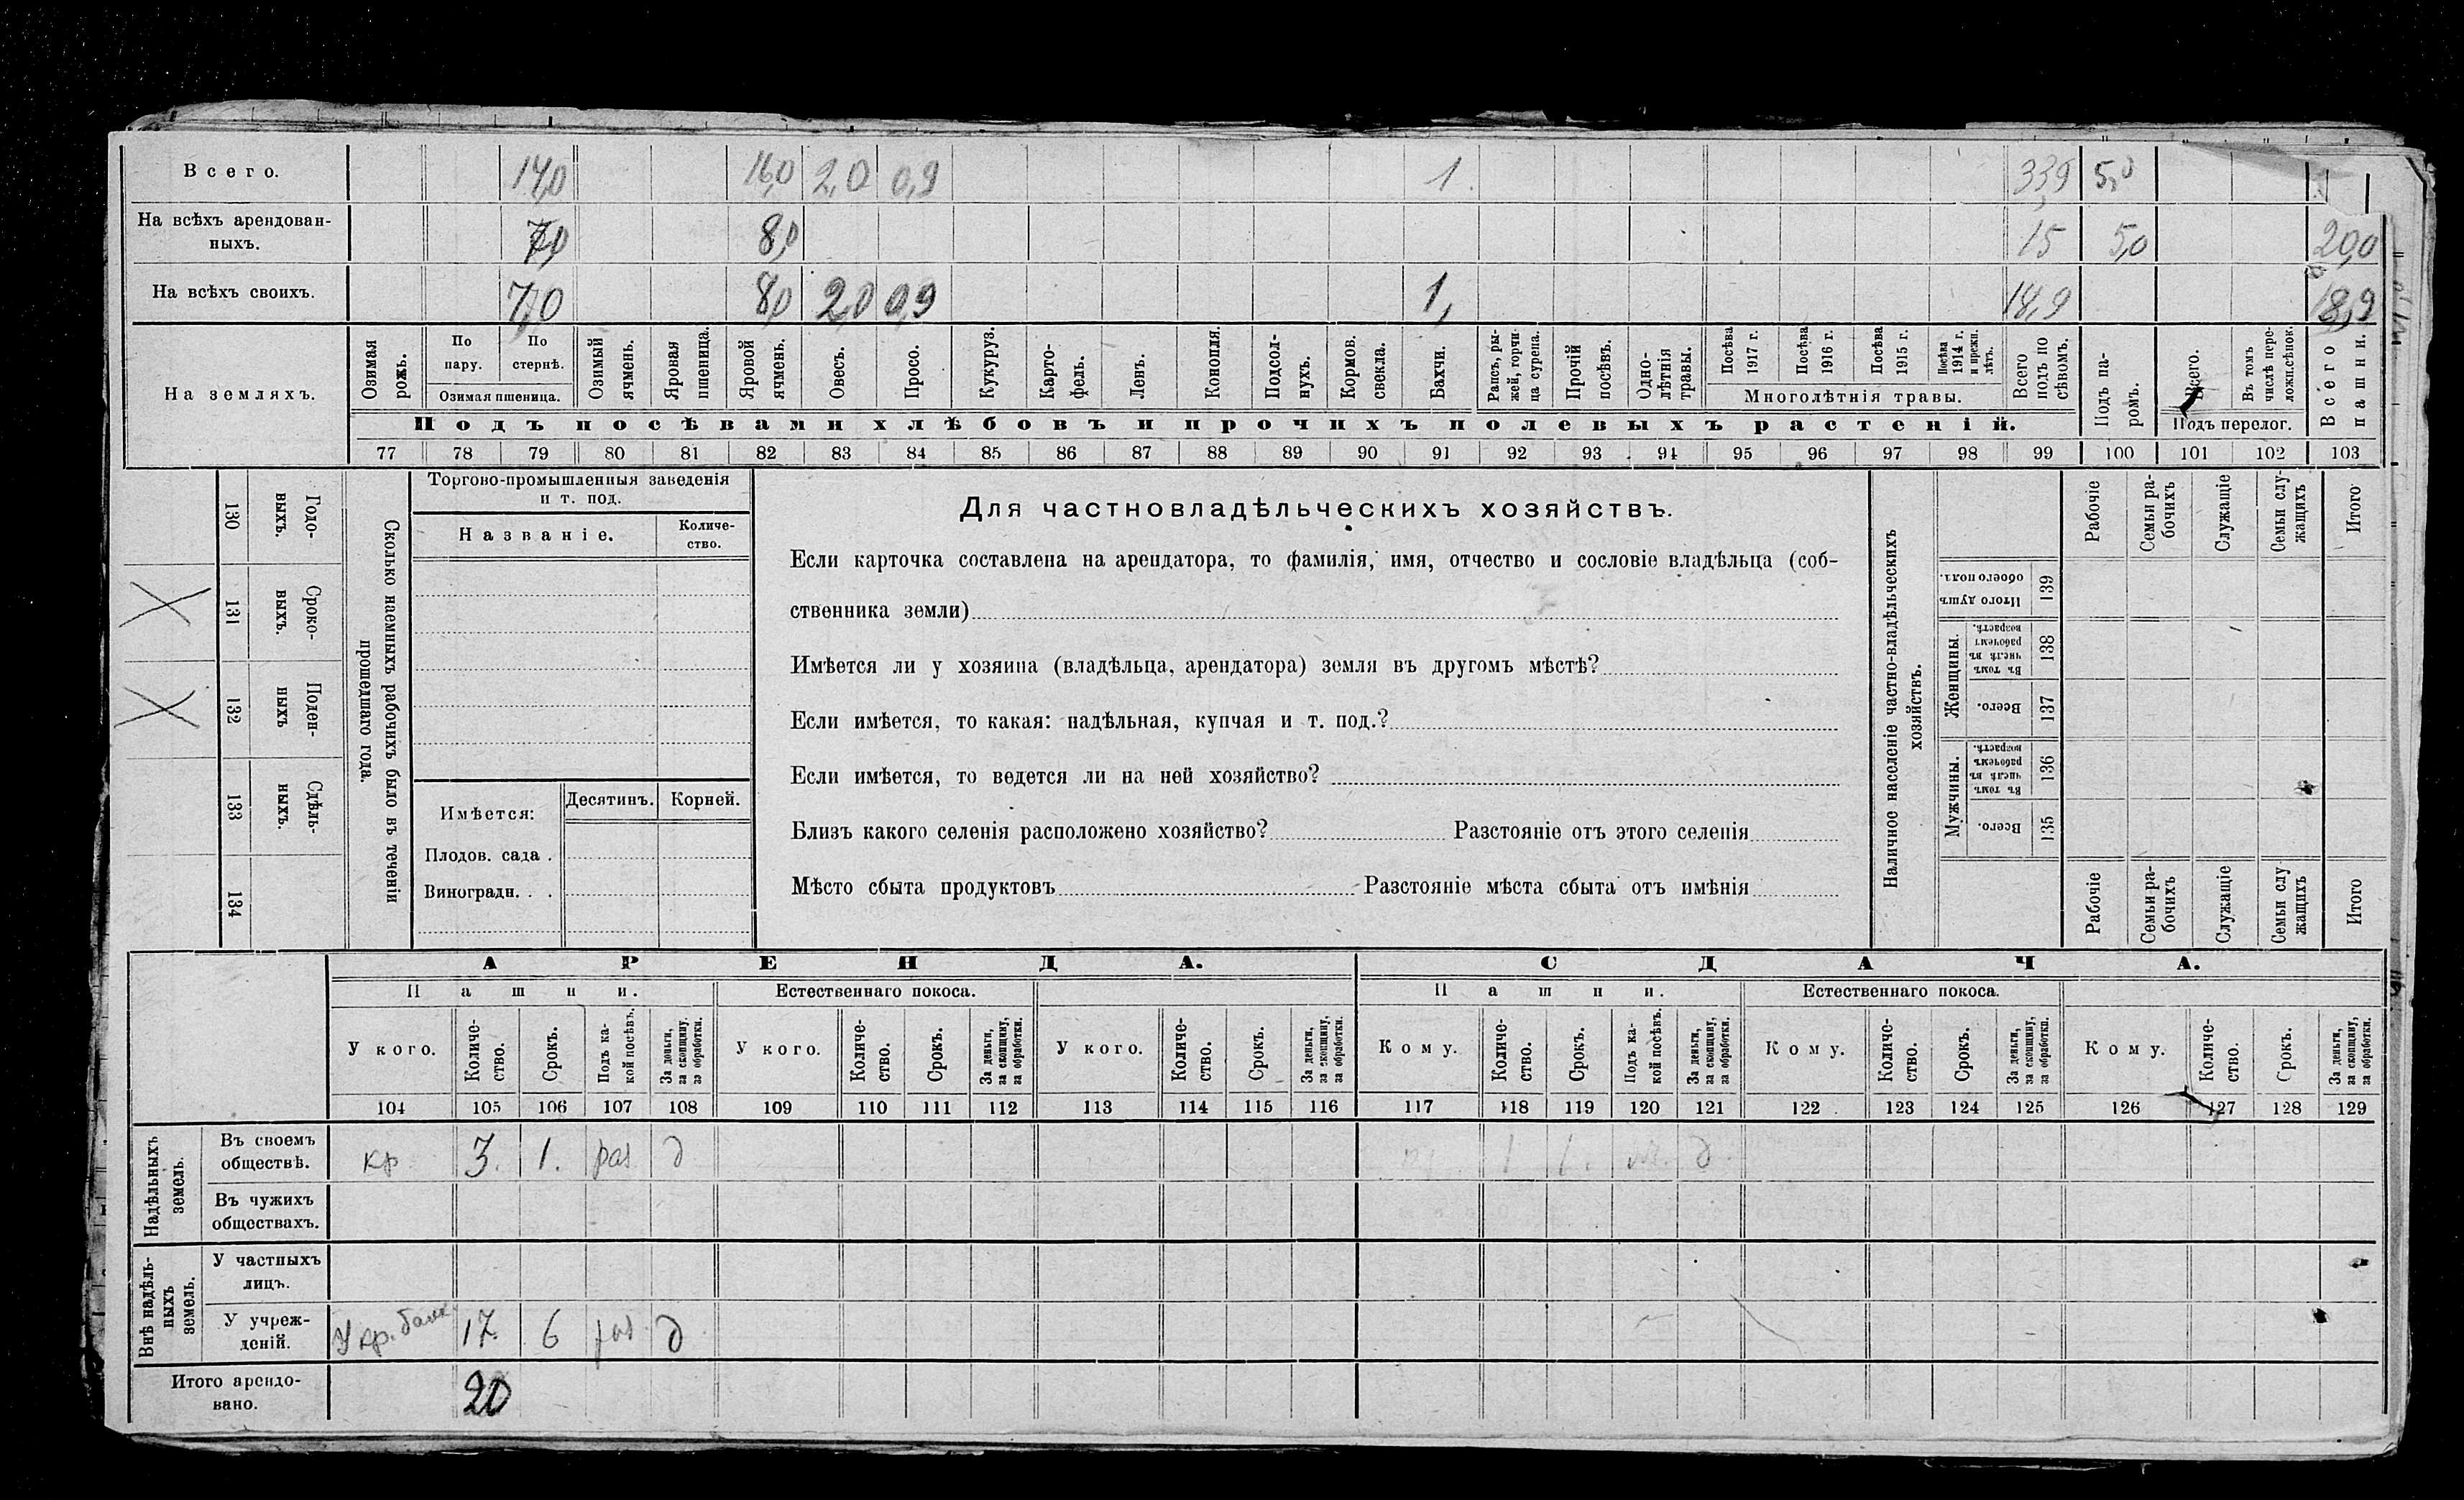 Всего. 14,0 16,0 2,0 0,9 1. 33,9 5,0
На всѣхъ арендован-
ныхъ. 7,0 8,0 15 5,0 20,0
На всѣхъ своихъ. 7,0 8,0 2,0 0,9 1, 18,9 18,9
На земляхъ.
Озимая рожь.
По пару.
По стернѣ.
Озимая пшеница.
Озимый ячмень.
Яровая пшеница.
Яровой ячмень.
Овесъ.
Просо.
Кукуруз.
Карто-
фель.
Ленъ.
Конопля.
Подсол-
нухъ.
Кормов. свекла.
Бахчи.
Рапсъ, ры-
жей, горчи
ца сурепа.
Прочій посѣвъ.
Одно-
лѣтнія травы.
Посѣва 1917 г.
Посѣва 1916 г.
Посѣва 1915 г.
Посѣва 1914 г. и прежн. лѣтъ.
Многолѣтнія травы.
Всего подъ по сѣвомъ.
Подъ па-
ромъ.
Всего.
Въ томъ числѣ пере-
ложн.сѣнок.
Подъ перелог.
Всего пашни.
Подъ посѣвами хлѣбовъ и прочихъ полевыхъ растеній.
77 78 79 80 81 82 83 84 85 86 87 88 89 90 91 92 93 94 95 96 97 98 99 100 101 102 103
130 Годо-
выхъ.
131 Сроко-
выхъ.
132 Поден-
ныхъ
133 Сдѣль-
ныхъ.
134
Сколько наемныхъ рабочихъ было въ теченіи
прошедшаго года.
Торгово-промышленныя заведенія
и т. под.
Названіе.
Количе-
ство.
Имѣется: Десятинъ. Корней.
Плодов. сада .
Виноградн. . .
Для частновладѣльческихъ хозяйствъ.
Если карточка составлена на арендатора, то фамилія, имя, отчество и сословіе владѣльца (соб-
ственника земли)
Имѣется ли у хозяина (владѣльца, арендатора) земля въ другомъ мѣстѣ?
Если имѣется, то какая: надѣльная, купчая и т. под.?
Если имѣется, то ведется ли на ней хозяйство?
Близъ какого селенія расположено хозяйство? Разстояніе отъ этого селенія
Мѣсто сбыта продуктовъ Разстояніе мѣста сбыта отъ имѣнія
Наличное населеніе частно-владѣльческихъ
хозяйствъ.
Рабочіе
Семьи ра-
бочихъ
Служащіе
Семьи слу-
жащихъ
Итого
Итого душъ обоего пола. 139
Женщины.
Въ томъ числѣ въ рабочемъ возрастѣ. 138
Всего. 137
Мужчины.
Въ томъ числѣ въ рабочемъ возрастѣ. 136
Всего. 135
Рабочіе
Семьи ра-
бочихъ
Служащіе
Семьи слу
жащихъ
Итого
АРЕНДА. СДАЧА.
Пашни. Естественнаго покоса. Пашни. Естественнаго покоса.
У кого. Количе-
ство. Срокъ. Подъ ка-
кой посѣвъ. За деньги, за скопщину, за обработки.
У кого. Количе-
ство. Срокъ. За деньги, за скопщину, за обработки.
У кого. Количе-
ство. Срокъ. За деньги, за скопщину, за обработки.
Кому. Количе-
ство. Срокъ. Подъ ка-
кой посѣвъ. За деньги, за скопщину, за обработки.
Кому. Количе-
ство. Срокъ. За деньги, за скопщину, за обработки.
Кому. Количе-
ство. Срокъ. За деньги, за скопщину, за обработки.
104 105 106 107 108 109 110 111 112 113 114 115 116 117 118 119 120 121 122 123 124 125 126 127 128 129
Надѣльныхъ земель.
Въ своемъ
обществѣ. кр 3. 1. раз д 1 1. д
Въ чужихъ
обществахъ.
Внѣ надѣль-
ныхъ земель.
У частныхъ
лицъ.
У учреж-
деній. У кр. банк 17. 6 раз. д
Итого арендо-
вано. 20